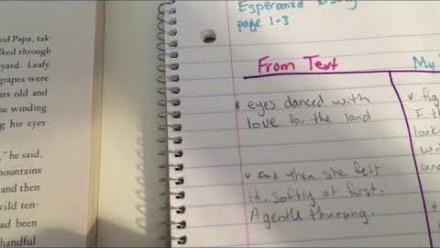 and Papa, tak-
lked through
yard. Leafy
grapes were
ars old and
he winding
g his eyes
," he said.
mountains
and then
wild ten-
had been
handful
Esperanza
page 1-3
From Text
My
eyes danced with
love for the land
and then she felt
it. Softly at first.
A gentle thumping.
I th